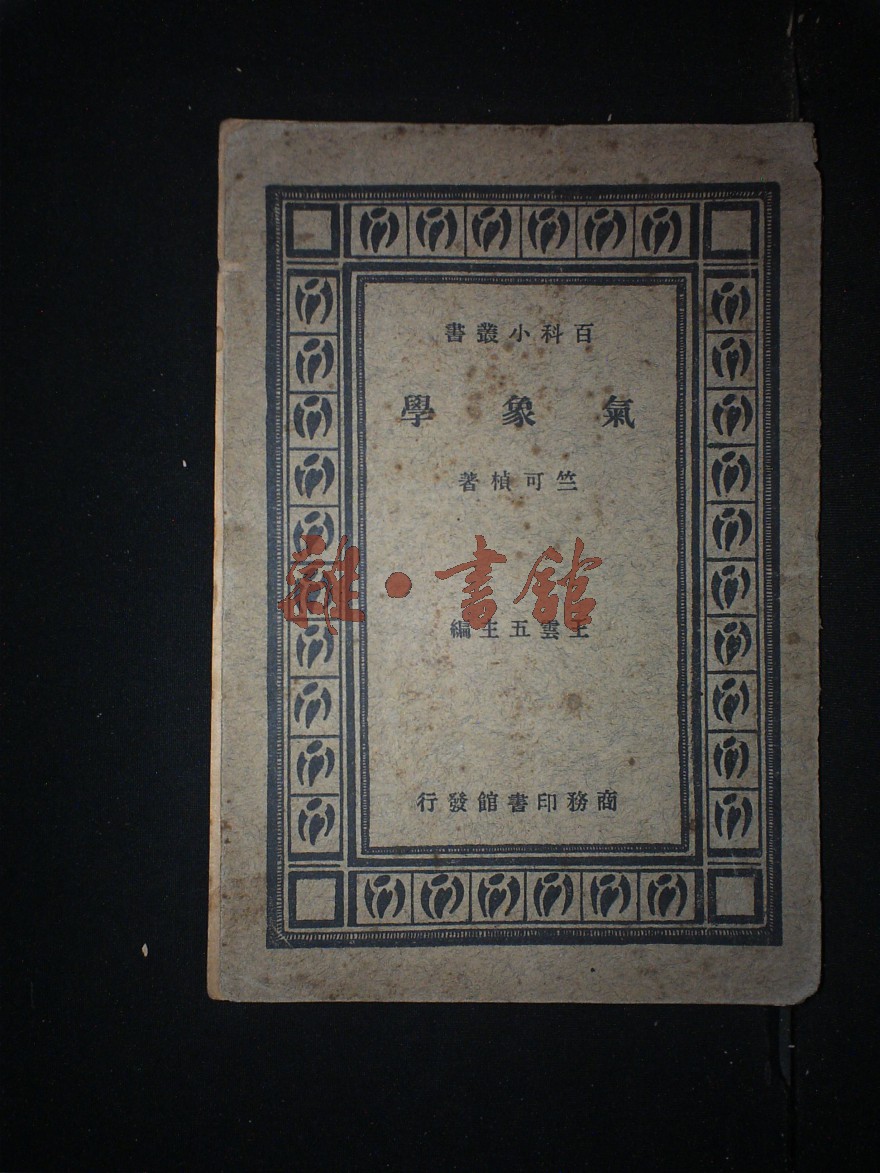 百科小叢書
氣象學
竺可楨著
雜·書館
王雲五主編
商務印書館發行